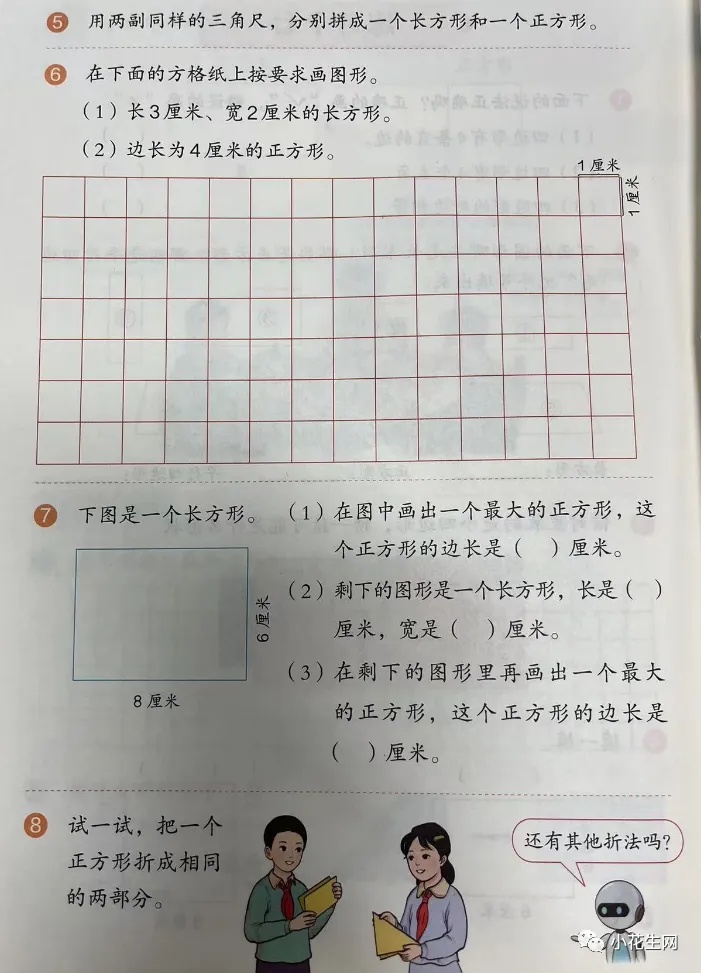 5 用两副同样的三角尺，分别拼成一个长方形和一个正方形。
6 在下面的方格纸上按要求画图形。
（1）长3厘米、宽2厘米的长方形。
（2）边长为4厘米的正方形。
1厘米
1厘米
7 下图是一个长方形。
6厘米
8厘米
（1）在图中画出一个最大的正方形，这
个正方形的边长是（ ）厘米。
（2）剩下的图形是一个长方形，长是（ ）
厘米，宽是（ ）厘米。
（3）在剩下的图形里再画出一个最大
的正方形，这个正方形的边长是
（ ）厘米。
8 试一试，把一个
正方形折成相同
的两部分。
还有其他折法吗？
小花生网